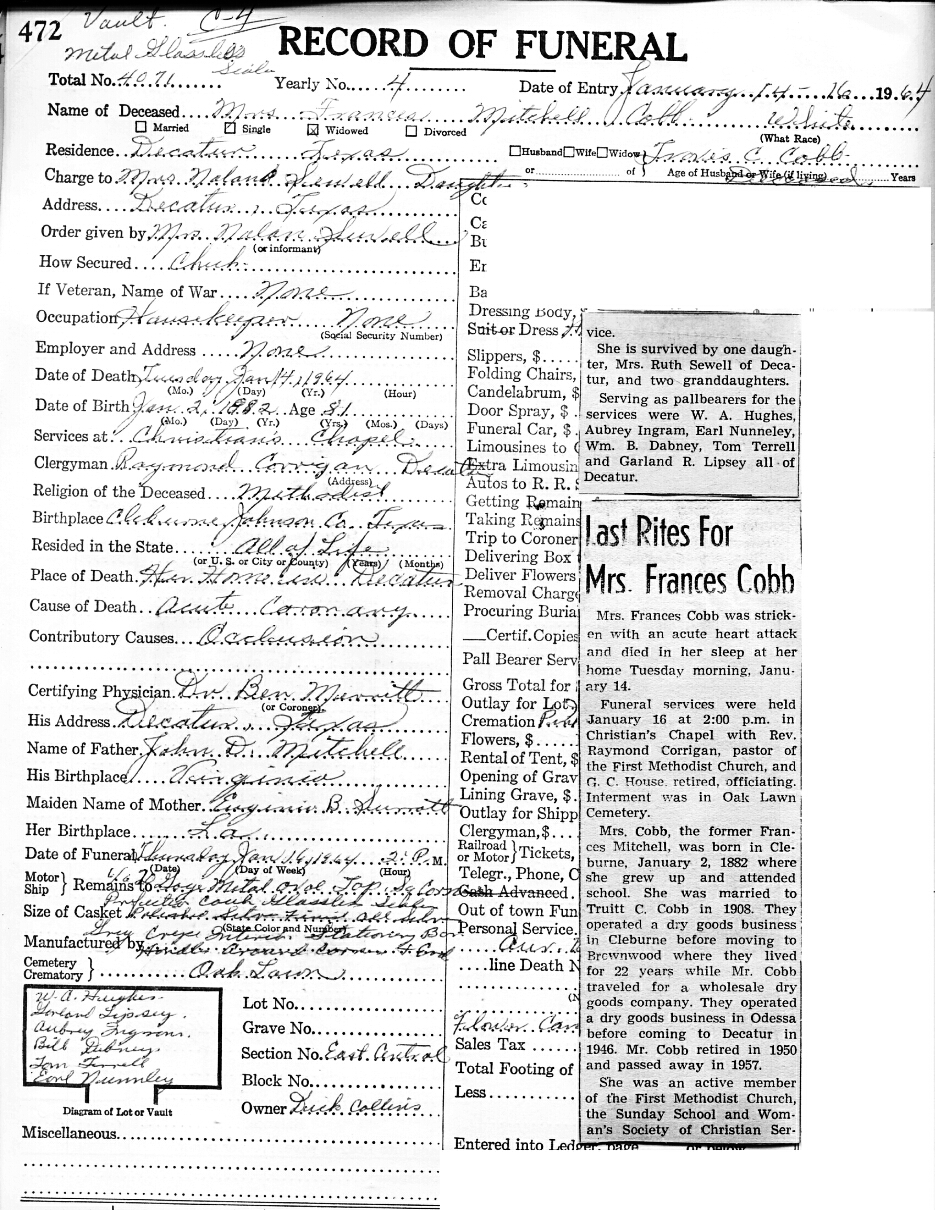 472
Vault. C-4
Metal Glassless
Sealer
RECORD OF FUNERAL
Total No. 4071 Yearly No. 4 Date of Entry January 14-16 1964
Name of Deceased Mrs Frances Mitchell Cobb White
(What Race)
Married Single Widowed Divorced
Residence Decatur Texas Husband Wife Widow C. Cobb
or of Age of Husband or Wife (if living) Years
Deceased
Charge to Mrs Noland Sewell Daughter
Address Decatur, Texas
Order given by Mrs. Nolan Sewell
(or informant)
How Secured
If Veteran, Name of War None
Occupation Housekeeper None
(Social Security Number)
Employer and Address None
Date of Death Tuesday Jan 14, 1964
(Mo.) (Day) (Yr.) (Hour)
Date of Birth Jan. 2, 1882 Age 81
(Mo.) (Day) (Yr.) (Yrs.) (Mos.) (Days)
Services at Christian's Chapel
Clergyman Raymond Corrigan Decatur
(Address)
Religion of the Deceased Methodist
Birthplace Cleburne Johnson Co. Texas
Resided in the State All of Life
(or U. S. or City or County) (Years) (Months)
Place of Death Her Home in Decatur
Cause of Death Acute Coronary
Contributory Causes Occlusion
Certifying Physician Dr. Ben Merritt
(or Coroner)
His Address Decatur, Texas
Name of Father John D. Mitchell
His Birthplace Virginia
Maiden Name of Mother Eugenia B.
Her Birthplace La
Date of Funeral Thursday Jan 16, 1964 2: P. M.
(Date) (Day of Week) (Hour)
Motor
Ship
Remains to Metal Top. Sq Corner
Size of Casket
(State Color and Number)
Grey Crepe Interior Stationery Bar
Manufactured by Handles Around Corner
Cemetery
Crematory
Oak Lawn
W. A. Hughes
Garland Lipsey.
Aubrey Ingram.
Bill Dabney
Tom Terrell
Earl Nunnley
Diagram of Lot or Vault
Lot No.
Grave No.
Section No. East Central
Block No.
Owner Dick Collins
Miscellaneous
Co
Ca
Bu
Er
Ba
Dressing Body,
Suit or Dress
Slippers, $
Folding Chairs,
Candelabrum, $
Door Spray, $
Funeral Car, $
Limousines to C
Extra Limousin
Autos to R. R. S
Getting Remain
Taking Remains
Trip to Coroner
Delivering Box
Deliver Flowers
Removal Charge
Procuring Buria
Certif. Copies
Pall Bearer Serv
Gross Total for
Outlay for Lot,
Cremation
Flowers, $
Rental of Tent, $
Opening of Grav
Lining Grave, $
Outlay for Shipp
Clergyman, $
Railroad
or Motor
Tickets,
Telegr., Phone, C
Cash Advanced
Out of town Fun
Personal Service
line Death N
(N
Flower Car
Sales Tax
Total Footing of
Less
Entered into Ledger, page or below
vice.
She is survived by one daugh-
ter, Mrs. Ruth Sewell of Deca-
tur, and two granddaughters.
Serving as pallbearers for the
services were W. A. Hughes,
Aubrey Ingram, Earl Nunneley,
Wm. B. Dabney, Tom Terrell
and Garland R. Lipsey all of
Decatur.
Last Rites For
Mrs. Frances Cobb
Mrs. Frances Cobb was strick-
en with an acute heart attack
and died in her sleep at her
home Tuesday morning, Janu-
ary 14.
Funeral services were held
January 16 at 2:00 p.m. in
Christian's Chapel with Rev.
Raymond Corrigan, pastor of
the First Methodist Church, and
G. C. House, retired, officiating.
Interment was in Oak Lawn
Cemetery.
Mrs. Cobb, the former Fran-
ces Mitchell, was born in Cle-
burne, January 2, 1882 where
she grew up and attended
school. She was married to
Truitt C. Cobb in 1908. They
operated a dry goods business
in Cleburne before moving to
Brownwood where they lived
for 22 years while Mr. Cobb
traveled for a wholesale dry
goods company. They operated
a dry goods business in Odessa
before coming to Decatur in
1946. Mr. Cobb retired in 1950
and passed away in 1957.
She was an active member
of the First Methodist Church,
the Sunday School and Wom-
an's Society of Christian Ser-